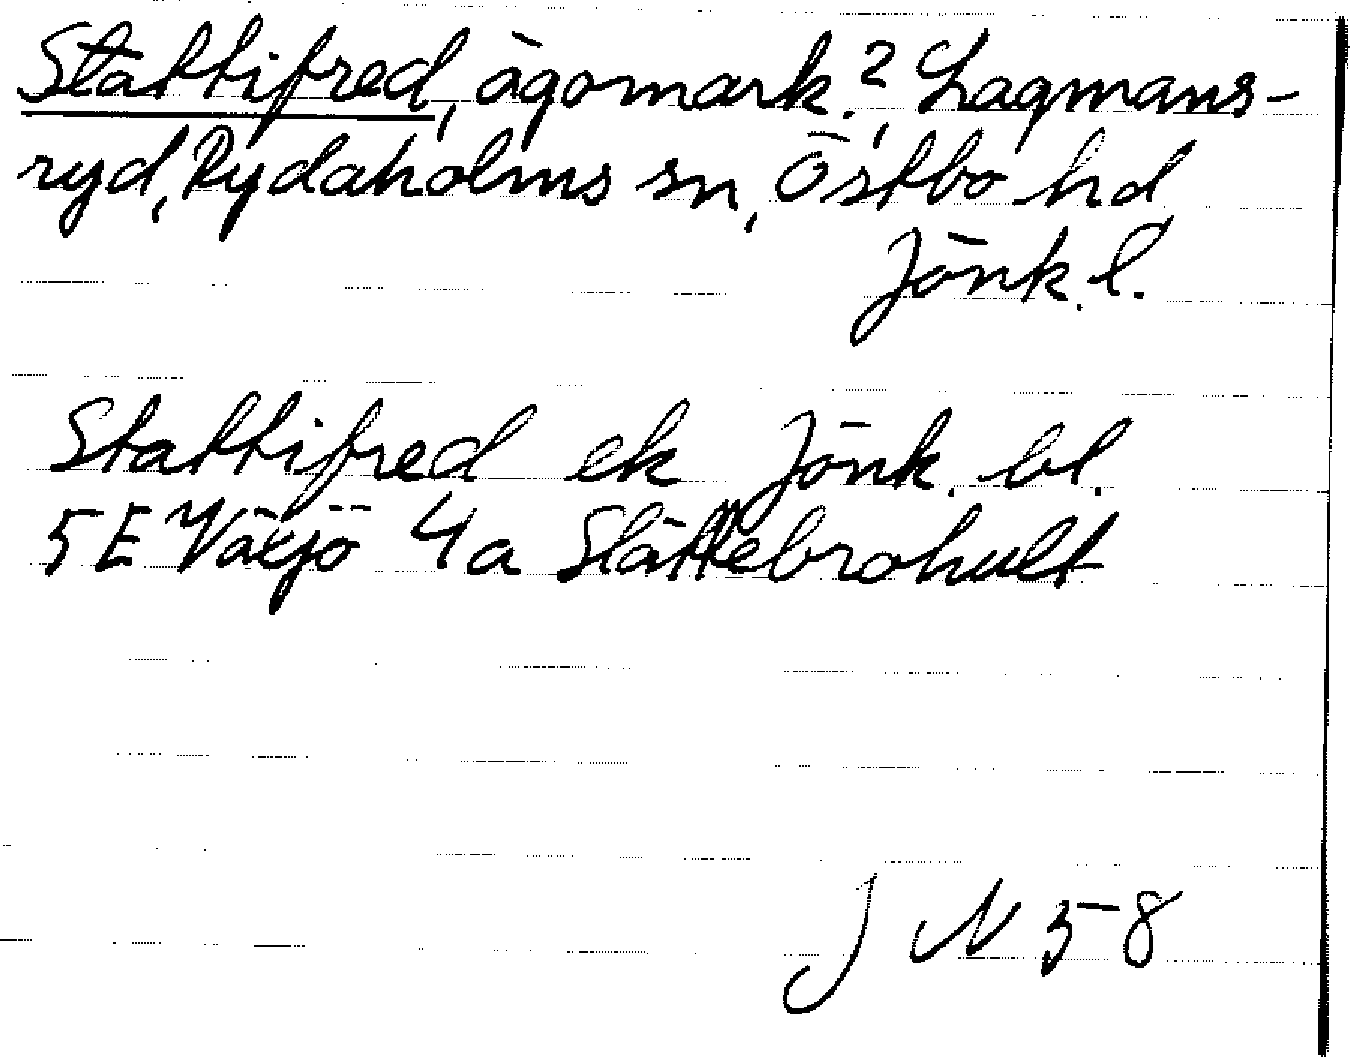 Stattifred, ägomark.?, Lagmans-
ryd, Rydaholms sn, Östbo hd
Jönk. l.
Stattifred ek Jönk. bl.
5E Växjö 4a Slättebrohult
J N 58